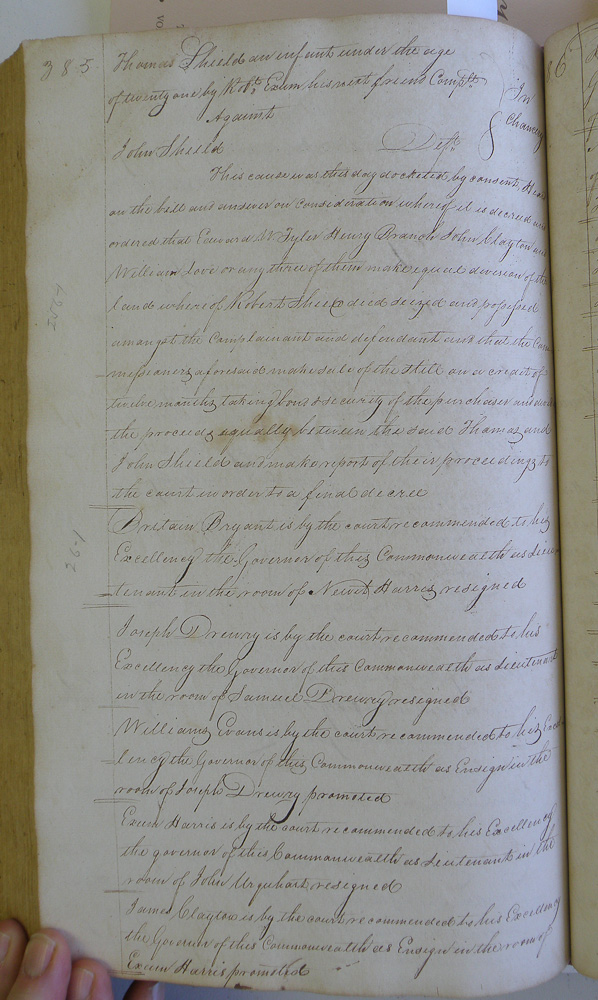 385
Thomas Shield an infant under the age
of twenty one by Robt. Exum his next friend Complt.
Against
In
Chancery
John Shield Deft.
This cause was this day docketed by consent, Hear
on the bill and answer on consideration whereof it is decreed and
ordered that Edward W Tyler Henry Branch John Clayton and
William Love or any three of them make equal division of the
land whereof Robert Shield died seized and possessed
amongst the Complainant and defendant and that the Com
missioners aforesaid make sale of the Still on a credit of
twelve months taking bond & security of the purchaser and
the proceeds equally between the said Thomas and
John Shield and make report of their proceedings to
the court in order to a final decree
Britain Bryant is by the court recommended to his
Excellency the Governor of this Commonwealth as Lieu
tenant in the room of Newit Harris resigned
Joseph Drewry is by the court recommended to his
Excellency the Governor of this Commonwealth as Lieutenant
in the room of Samuel Drewry resigned
Williams Evans is by the court recommended to his Excel
lency the Governor of this Commonwealth as Ensign in the
room of Joseph Drewry promoted
Exum Harris is by the court recommended to his Excellency
the governor of this Commonwealth as Lieutenant in the
room of John Urquhart resigned
James Clayton is by the court recommended to his Excellency
the Governor of this Commonwealth as Ensign in the room of
Exum Harris promoted
264
264
86